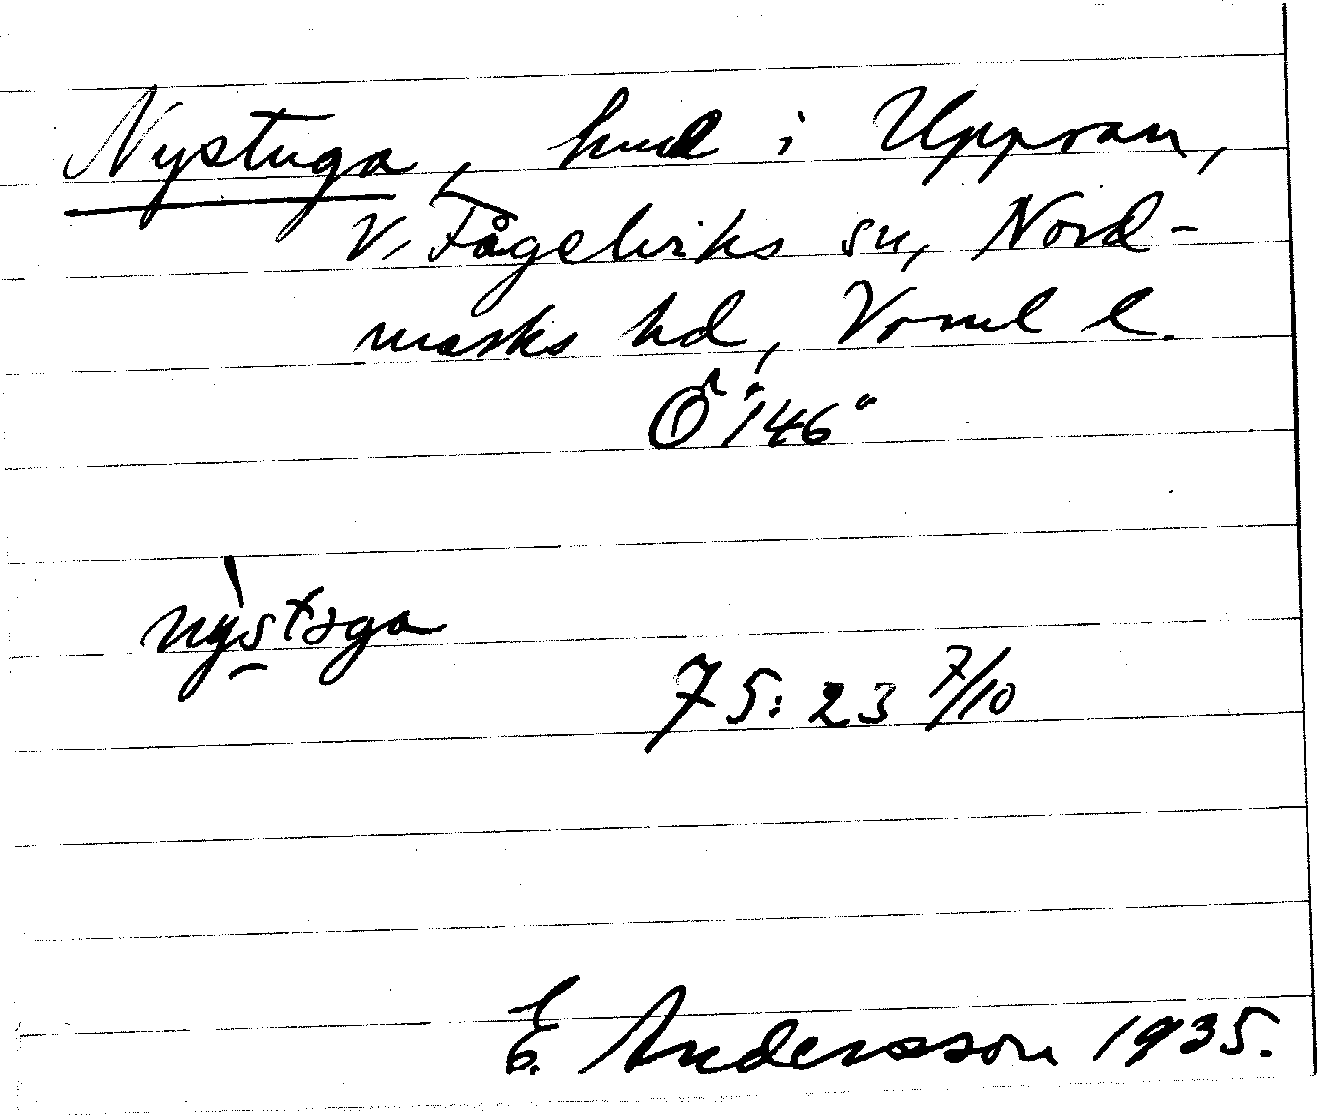 Nystuga, hmd i Uppran,
V. Fågelviks sn, Nord-
marks hd, Vrml l.
Ö "146"
nỳstɜga
75:23 7/10
E. Andersson 1935.